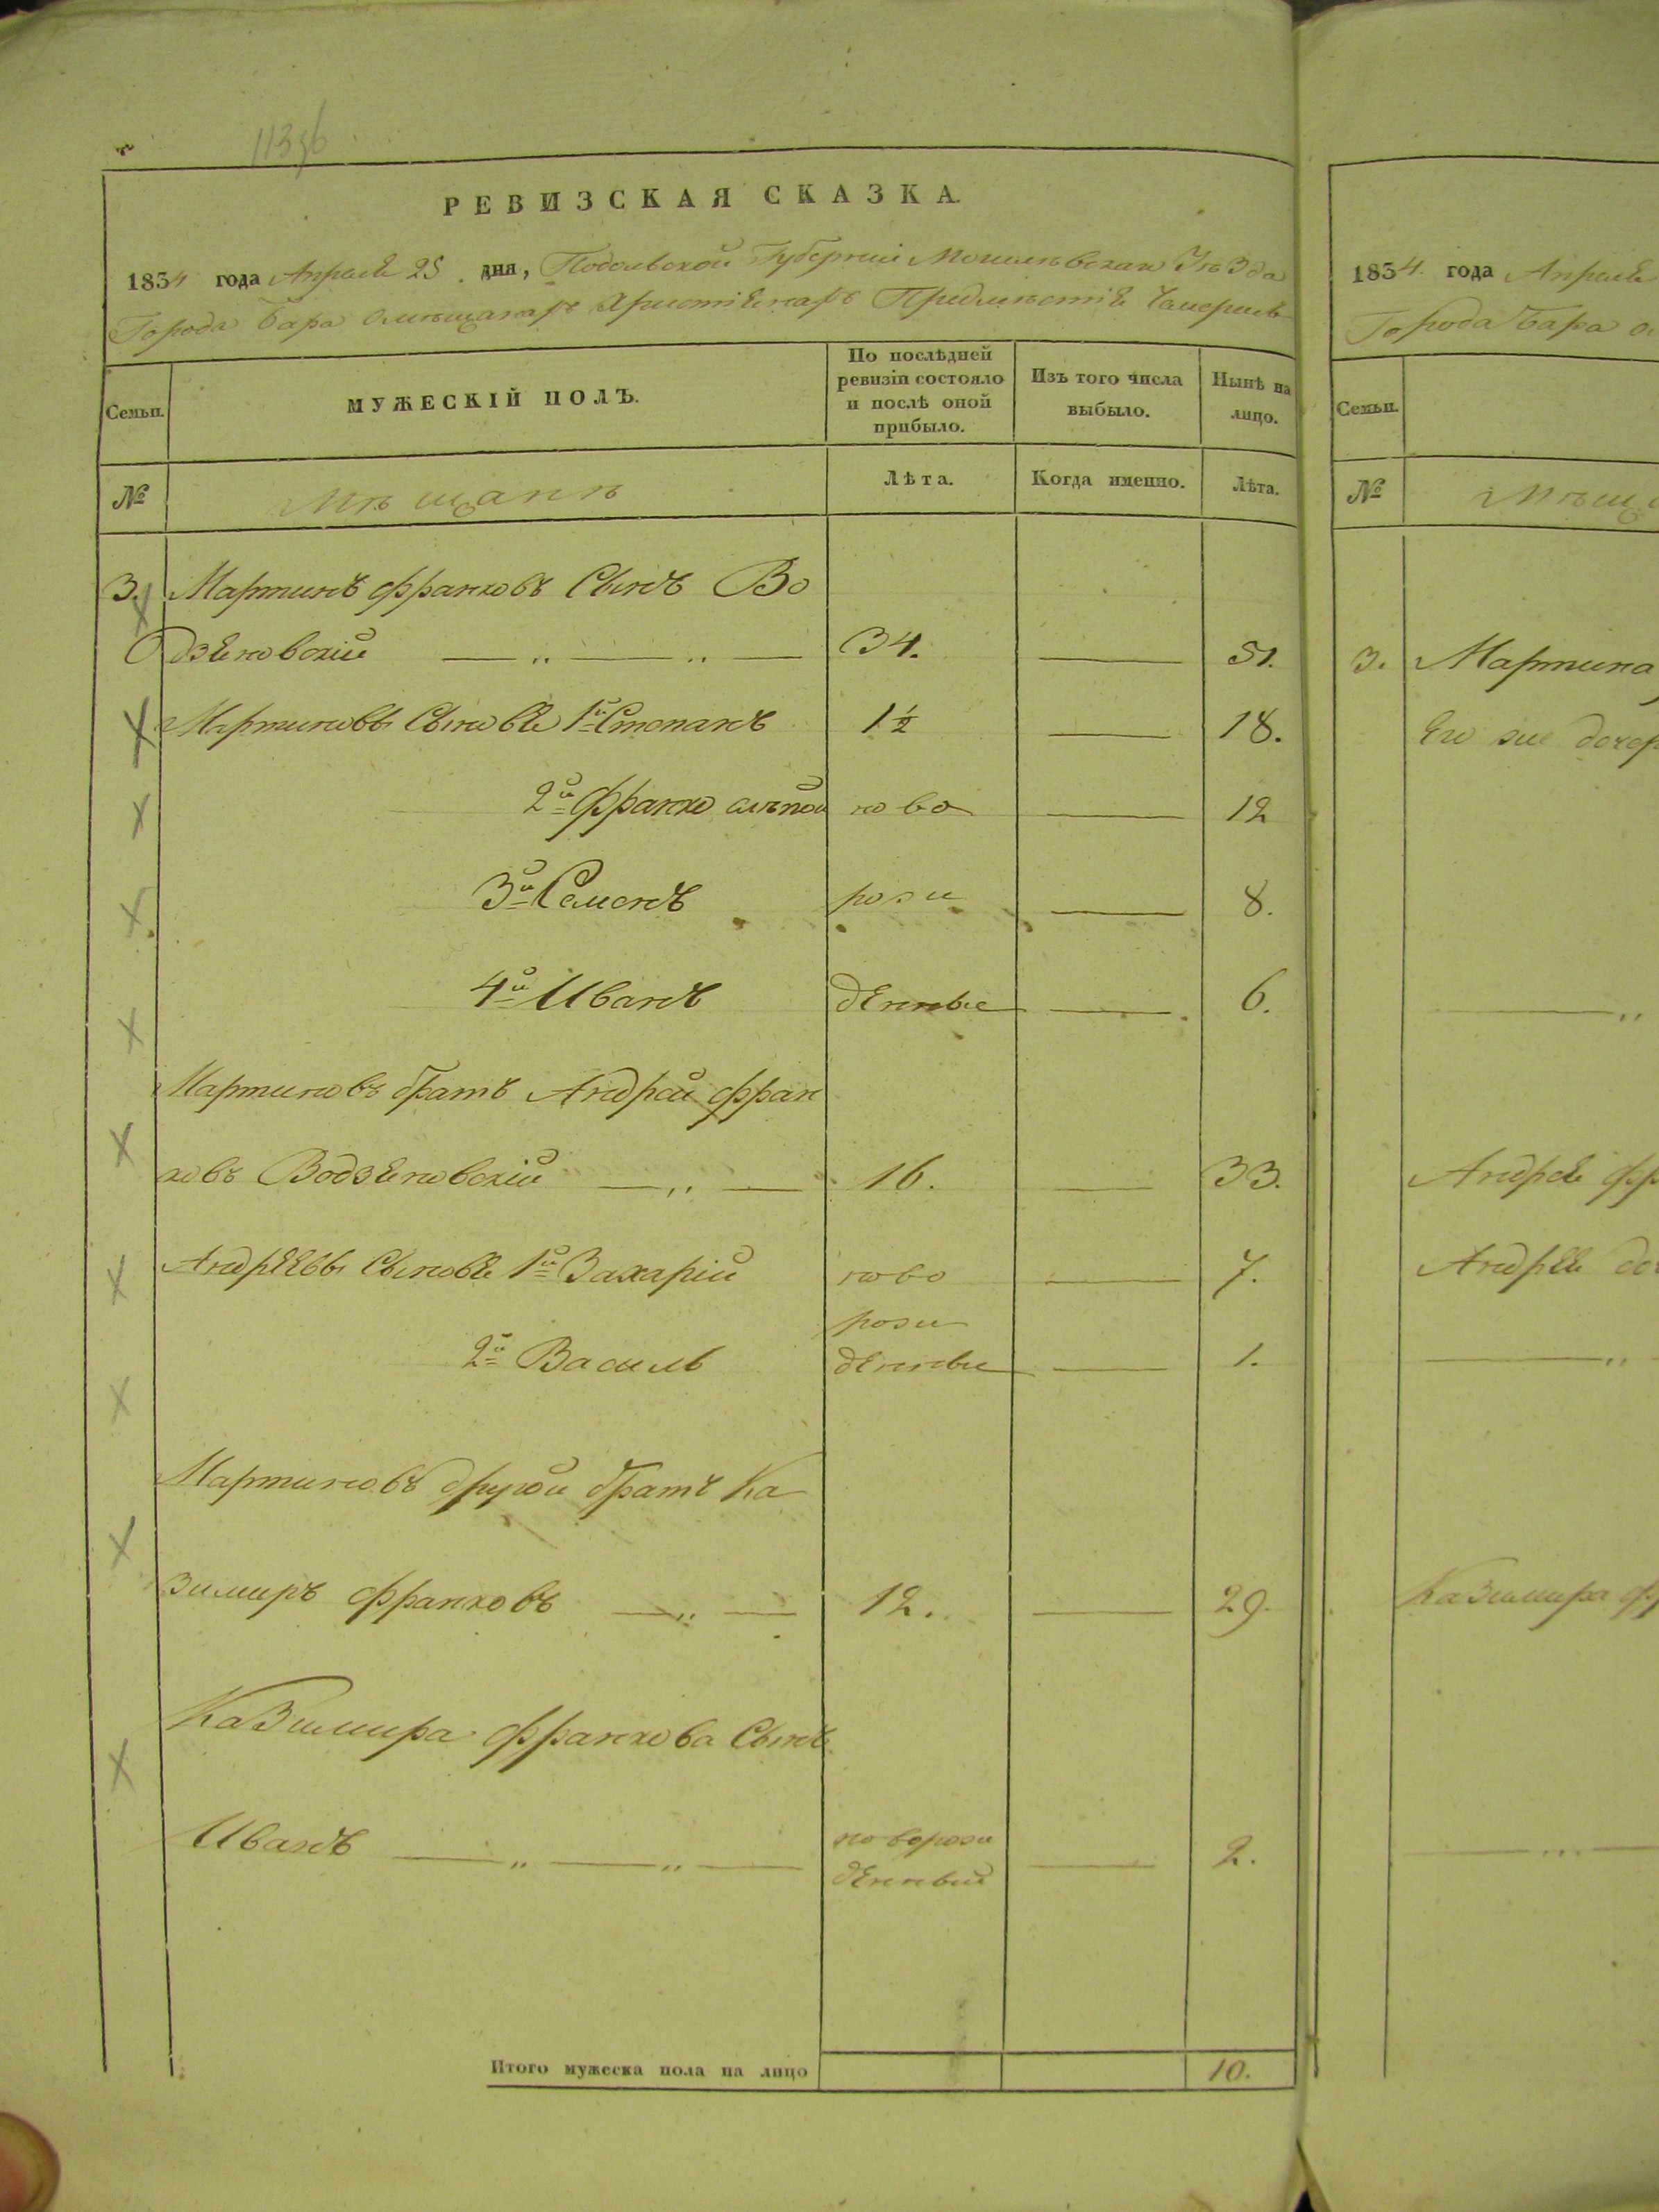 РЕВИЗСКАЯ СКАЗКА.
1834 года Апреля 25 дня, Подольской Губернии Могилевскаго Уѣзда
Города Бара о мѣщанахъ Христіянахъ Предмѣстіе
Семьи.
МУЖЕСКІЙ ПОЛЪ.
По послѣдней ревизіи состояло и послѣ оной прибыло.
Изъ того числа выбыло.
Нынѣ на лицо.
№
Мѣщанѣ
Лѣта.
Когда именно.
Лѣта.
3. Мартинъ Франковъ Сынъ Во
дзяновскій 34. 51.
Мартиновы Сыновья 1й Степанъ 1½ 18.
2й Франко слѣпой ново 12
3й Семенъ рожи 8.
4й Иванъ дЕнные 6.
Мартиновъ братъ Андрей Фран
ковъ Водзяновскій 16. 33.
АндрЕЕвы Сыновья 1й Захарій ново 7.
рожи
2й Василь дЕнные 1.
Мартиновъ другой братъ Ка
зимиръ Франковъ 12. 29.
Казимира Франкова Сынъ
Иванъноворожи 2.
дЕнный
Итого мужеска пола на лицо 10.
1834. года Апреля
Города Бара о
Семьи.
№
Мѣщ
3. Мартина
Его же дочер
Андрея Фр
Андрея до
Казимира Фр